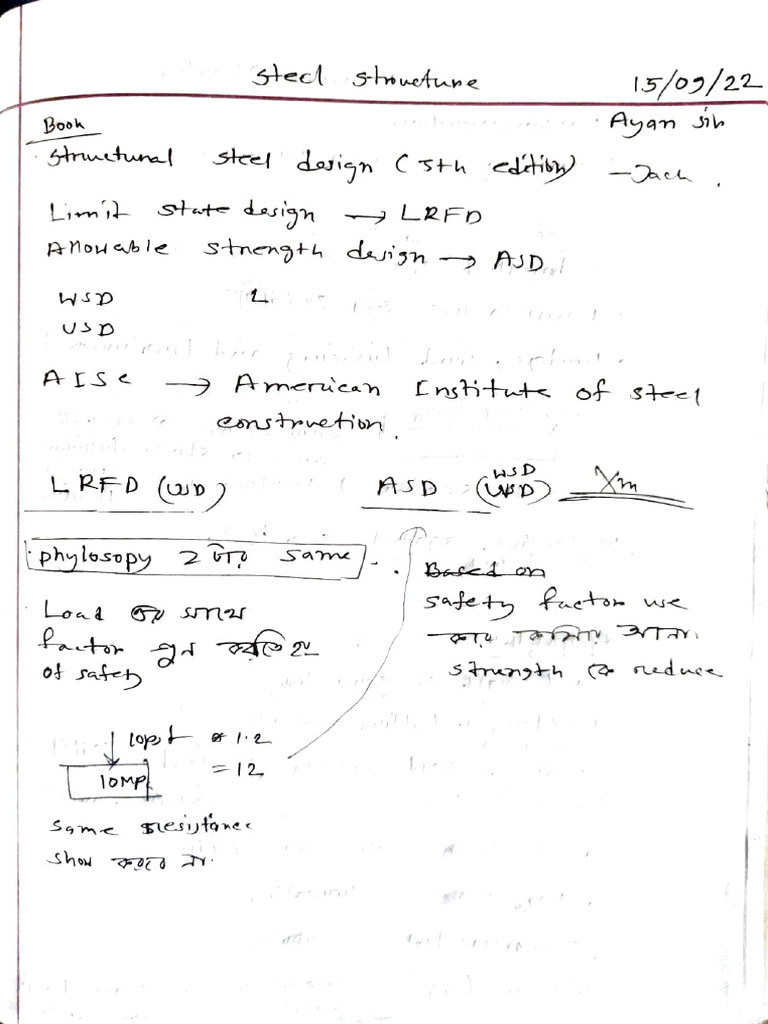 Steel structure
15/09/22
Ayan sir
Book
Structural steel design (5th edition) - Jack.
Limit state design → LRFD
Allowable strength design → ASD
WSD
USD
AISC → American Institute of steel
construction.
LRFD (USD)
ASD (WSD) WSD Xm
phylosopy 2 টার same
Load এর সাথে
factor গুন করতে হয়
of safety
Based on
safety factor use
করে কমিয়ে আনা
strength কে reduce
10psf * 1.2
= 12
10MP
Same resistance
show করবে না.